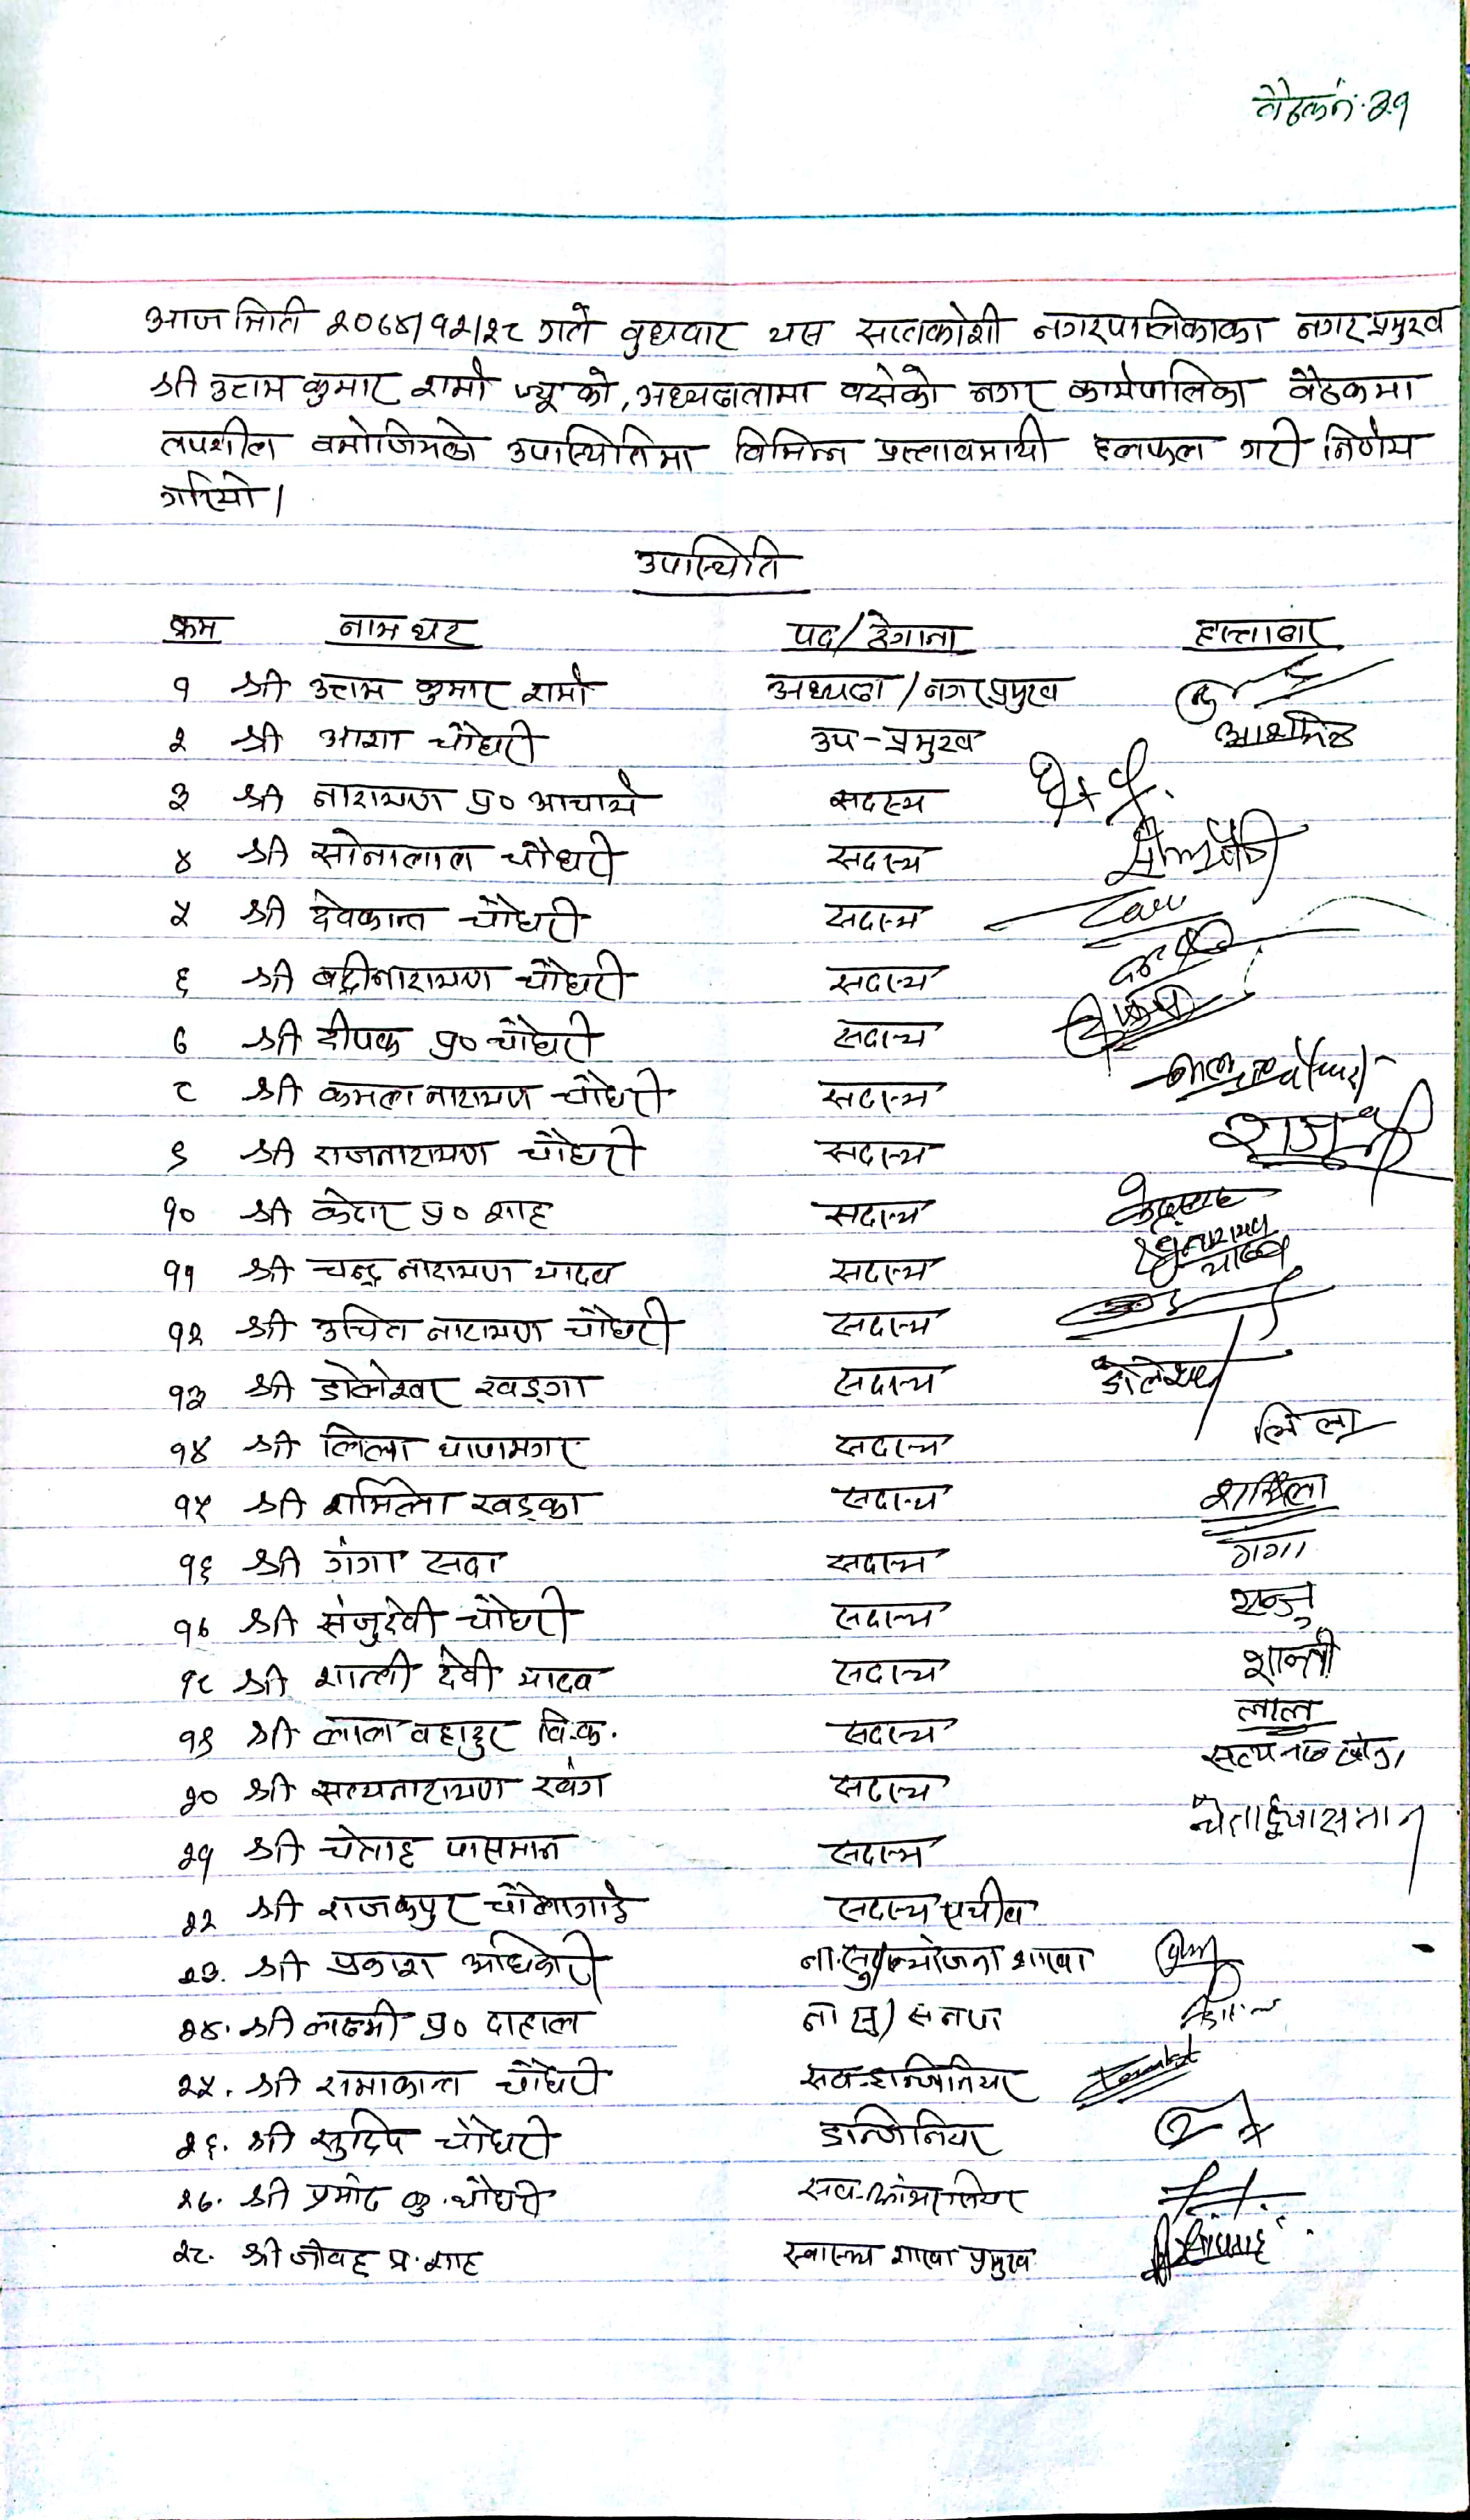 बैठक नं. २१
आज मिति २०७४/१२/२८ गते वुधवार यस सप्तकोशी नगरपालिकाका नगर प्रमुख
श्री उत्तम कुमार शर्मा ज्यूको, अध्यक्षतामा वसेको नगर कार्यपालिका बैठकमा
तपशील वमोजिमको उपस्थितिमा विभिन्न प्रस्तावमाथी छलफल गरी निर्णय
गरियो।
उपस्थिति
क्रम नाम थर पद/ठेगाना हस्ताक्षर
१ श्री उत्तम कुमार शर्मा अध्यक्ष/नगर प्रमुख
२ श्री आशा चौधरी उप-प्रमुख
३ श्री नारायण प्र० आचार्य सदस्य
४ श्री सोनालाल चौधरी सदस्य
५ श्री देवकान्त चौधरी सदस्य
६ श्री बद्रीनारायण चौधरी सदस्य
७ श्री दीपक प्र० चौधरी सदस्य
८ श्री कमल नारायण चौधरी सदस्य
९ श्री राजनारायण चौधरी सदस्य
१० श्री केदार प्र० शाह सदस्य
११ श्री चन्द्र नारायण यादव सदस्य
१२ श्री उचित नारायण चौधरी सदस्य
१३ श्री डोलेश्वर खड्गा सदस्य डोलेश्वर
१४ श्री लिला थापामगर सदस्य लिला
१५ श्री शर्मिला खड्का सदस्य शर्मिला
१६ श्री गंगा सदा सदस्य गंगा
१७ श्री संजुदेवी चौधरी सदस्य सन्जु
१८ श्री शान्ती देवी यादव सदस्य शान्ती
१९ श्री लाल वहादुर वि.क. सदस्य लाल
२० श्री सत्यनारायण खंग सदस्य
२१ श्री चेताह पासमान सदस्य चेताह पासमान
२२ श्री राजकपुर चौलागाई सदस्य सचीव
२३. श्री प्रकाश अधिकारी ना.सु/योजना शाखा
२४. श्री लक्ष्मी प्र० दाहाल ना सु/
२५. श्री रामाकान्त चौधरी सव-इन्जिनियर
२६. श्री सुदिप चौधरी इन्जिनियर
२७. श्री प्रमोद कु. चौधरी
२८. श्री जोवह प्र. शाह स्वास्थ्य शाखा प्रमुख